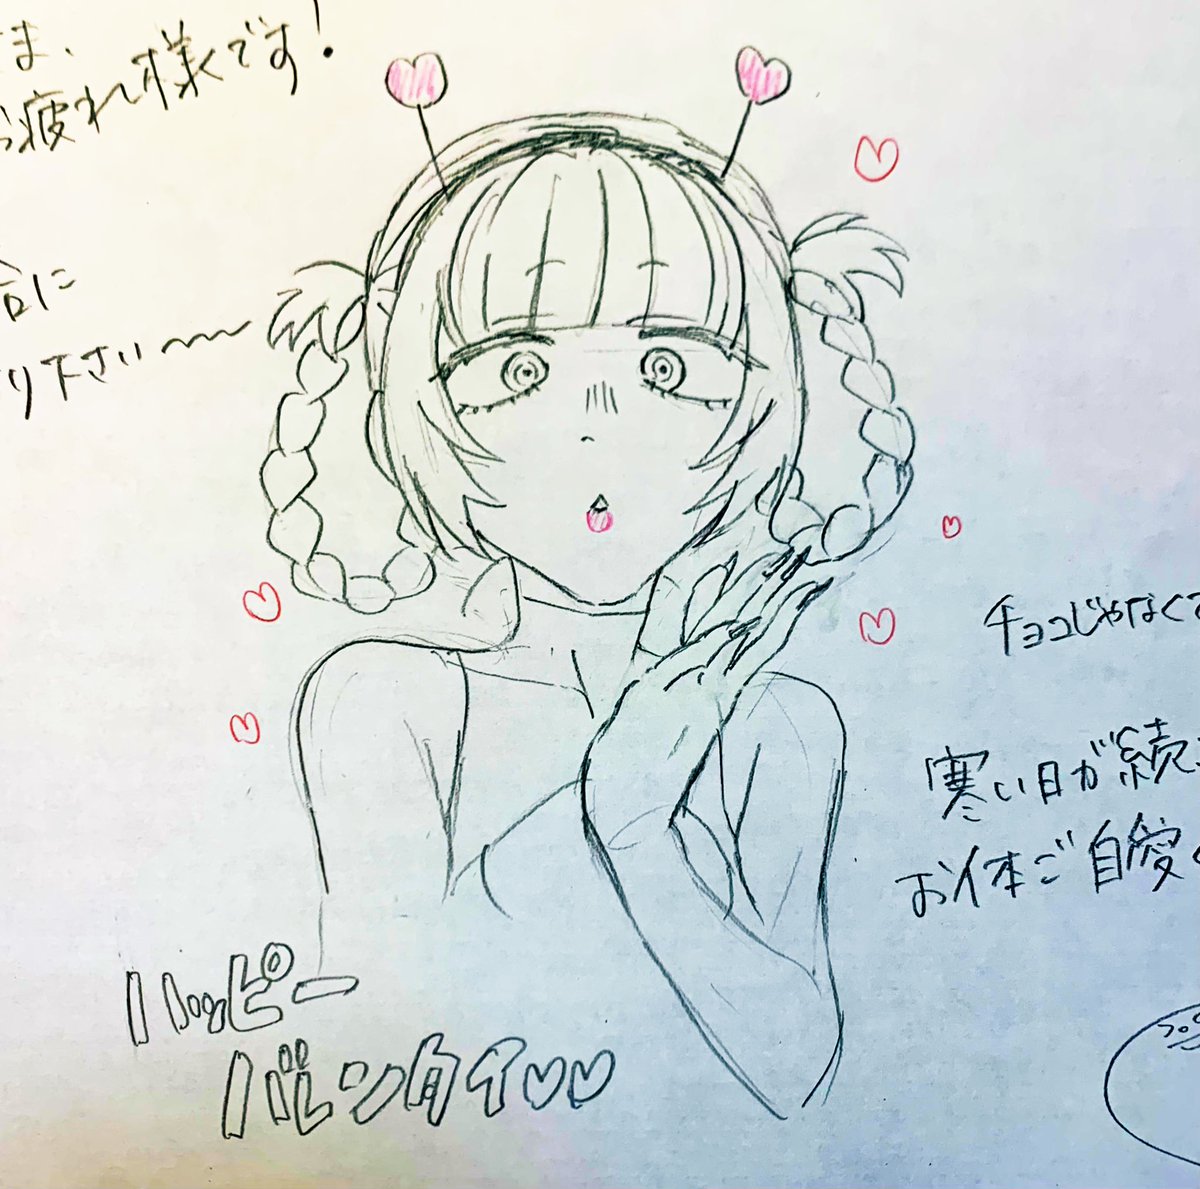 ま、
お疲れ様です!
合に
り下さい〜〜
チョコじゃなくて
寒い日が続
お体ご自愛く
ハッピー
バレンタイ♡♡